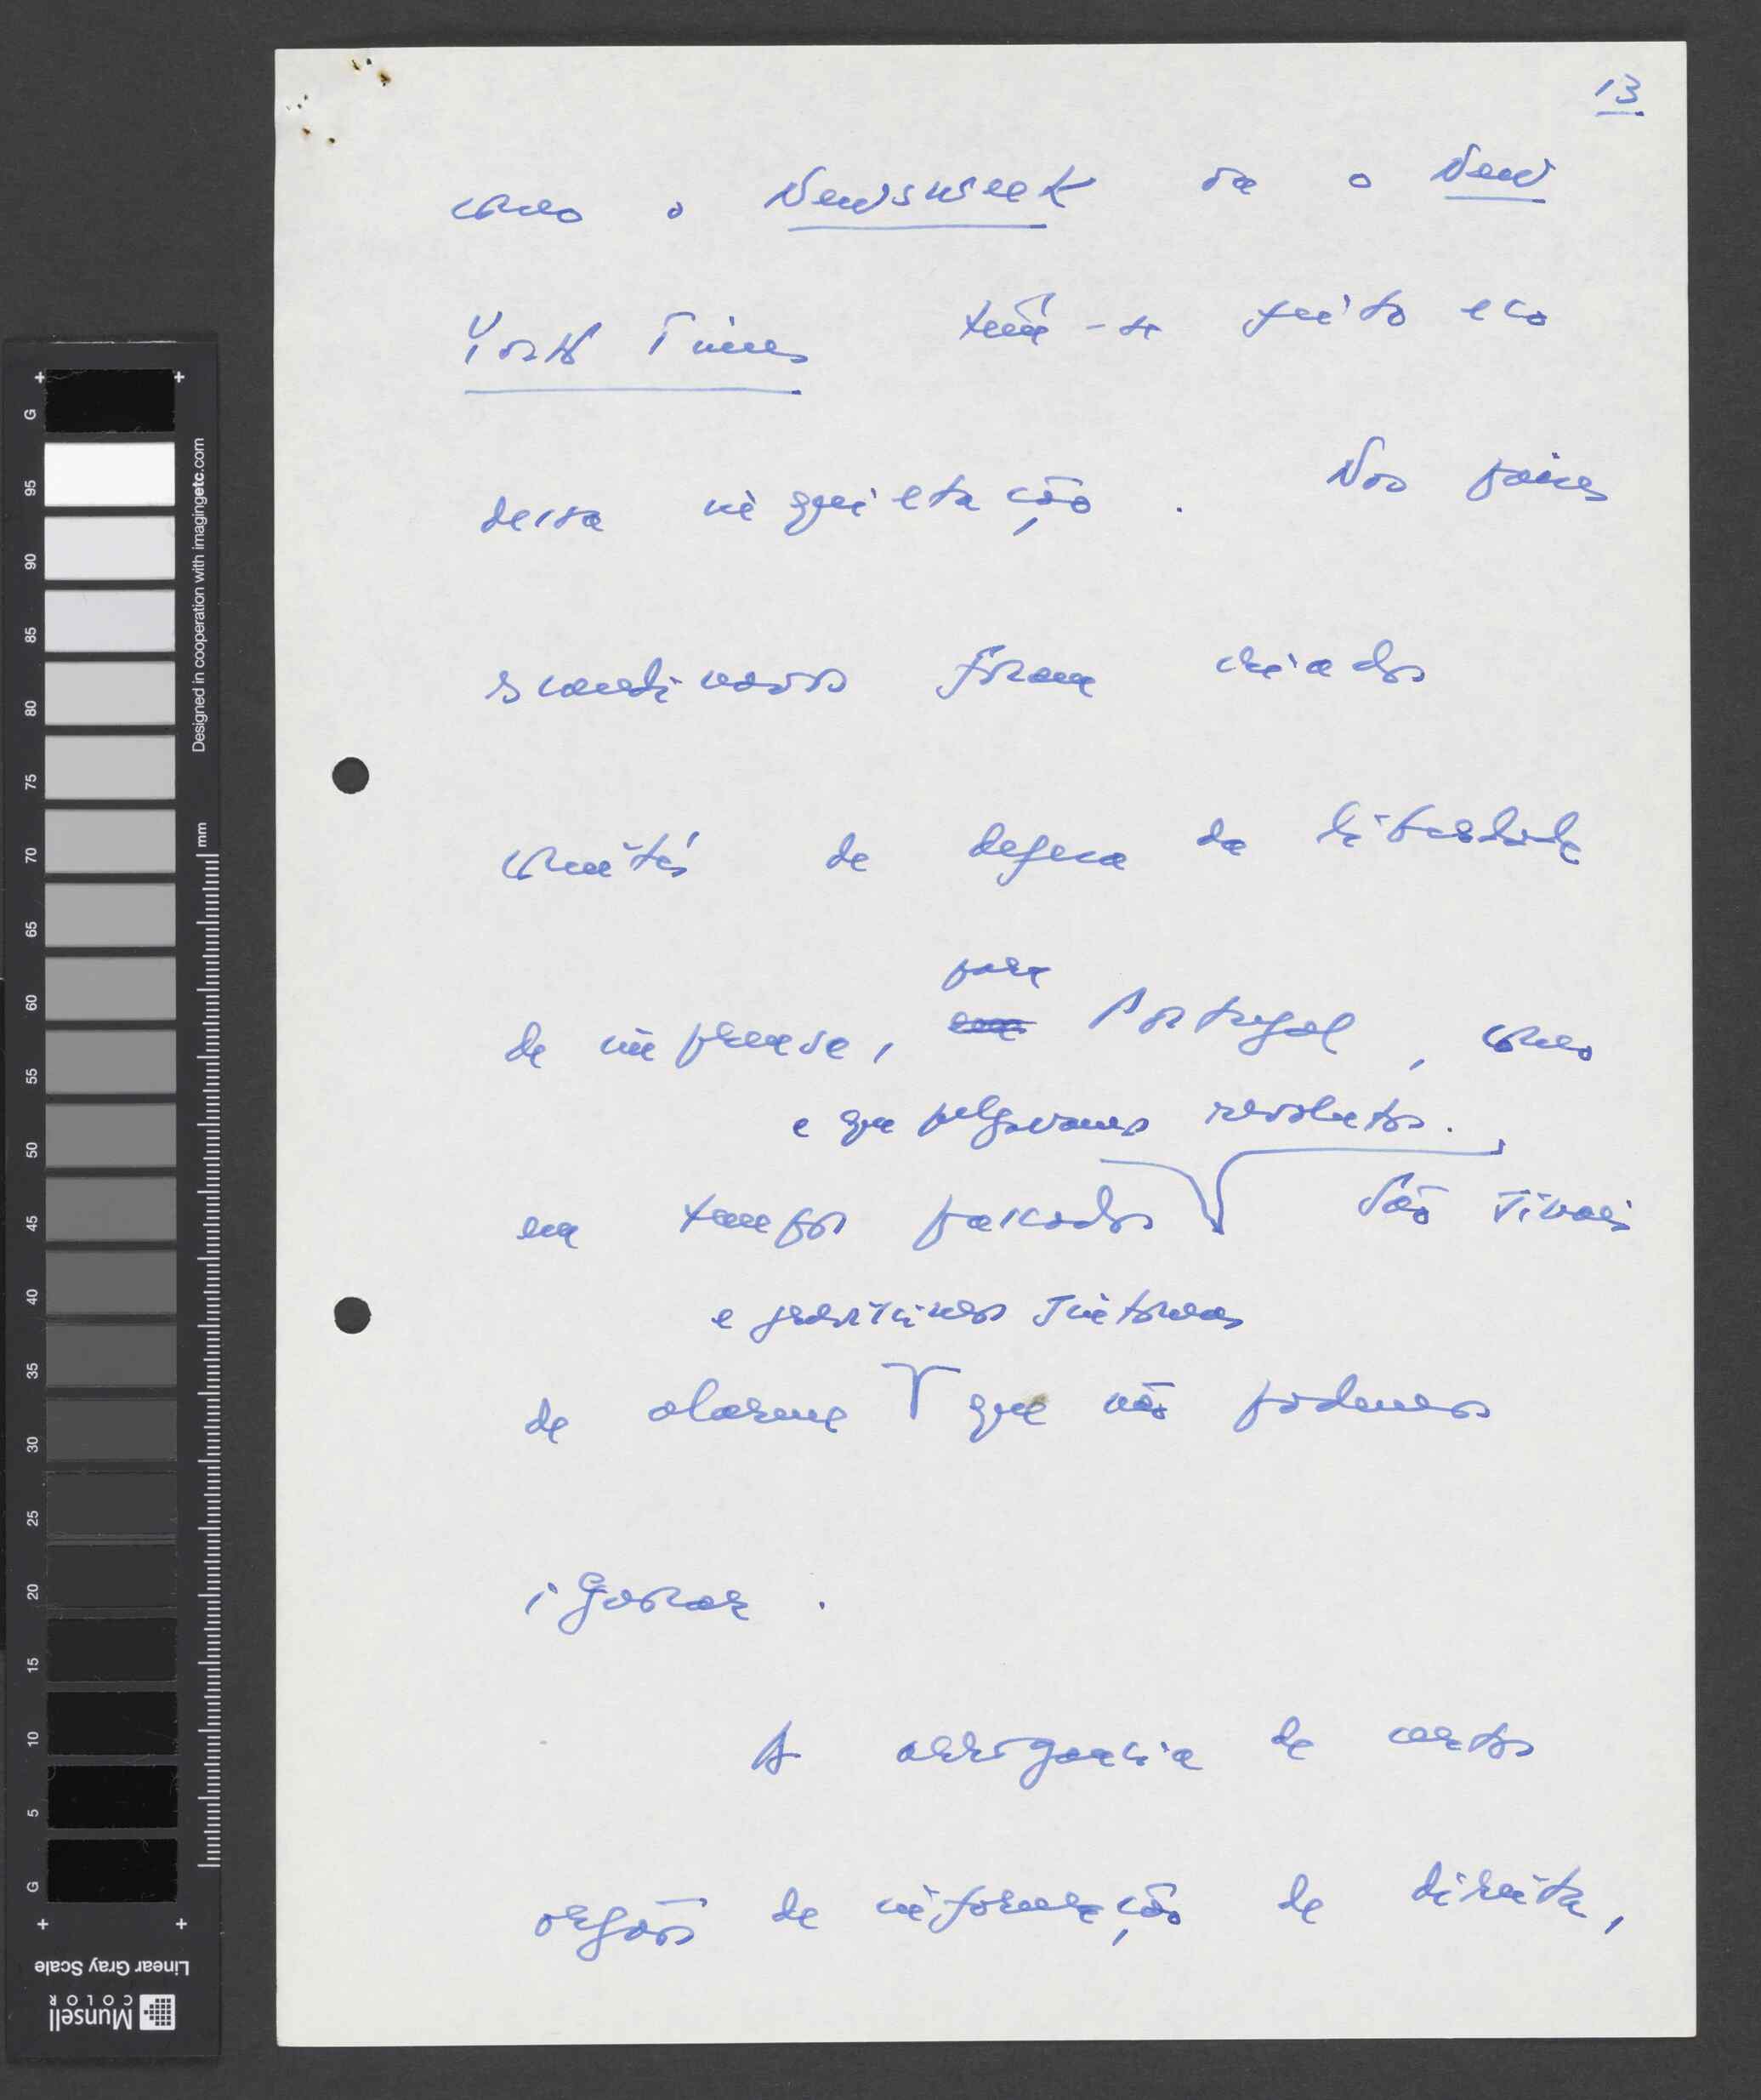 13
como o Newsweek ou o New
York Times têm-se feito eco
dessa inquietação. Nos países
scandinavos foram criados
comités de defesa da liberdade
para
de imprensa, em Portugal, como
e que julgávamos resolutos.
em tempos passados São sinais
e gravíssimos sintomas
de alarme que não podemos
ignorar.
A arrogancia de certos
orgãos de informação de direita,
G
95
90
85
80
75
70
65
60
55
50
45
40
35
30
25
20
15
10
5
G
mm
Designed in cooperation with imagingetc.com
Linear Gray Scale
Munsell
COLOR